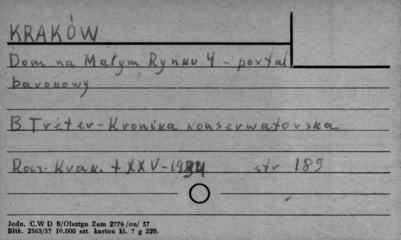 KRAKÓW
Dom na Małym Rynku 4 - portal
barokowy
B. Treter - Kronika konserwatorska
Rocz. Krak. t XXV - 1934 str 189
Jedn. C.W D B/Olsztyn Zam 2776/on/ 57
Bltk. 2563/57 10.000 szt. karton kl. 7 g 220.